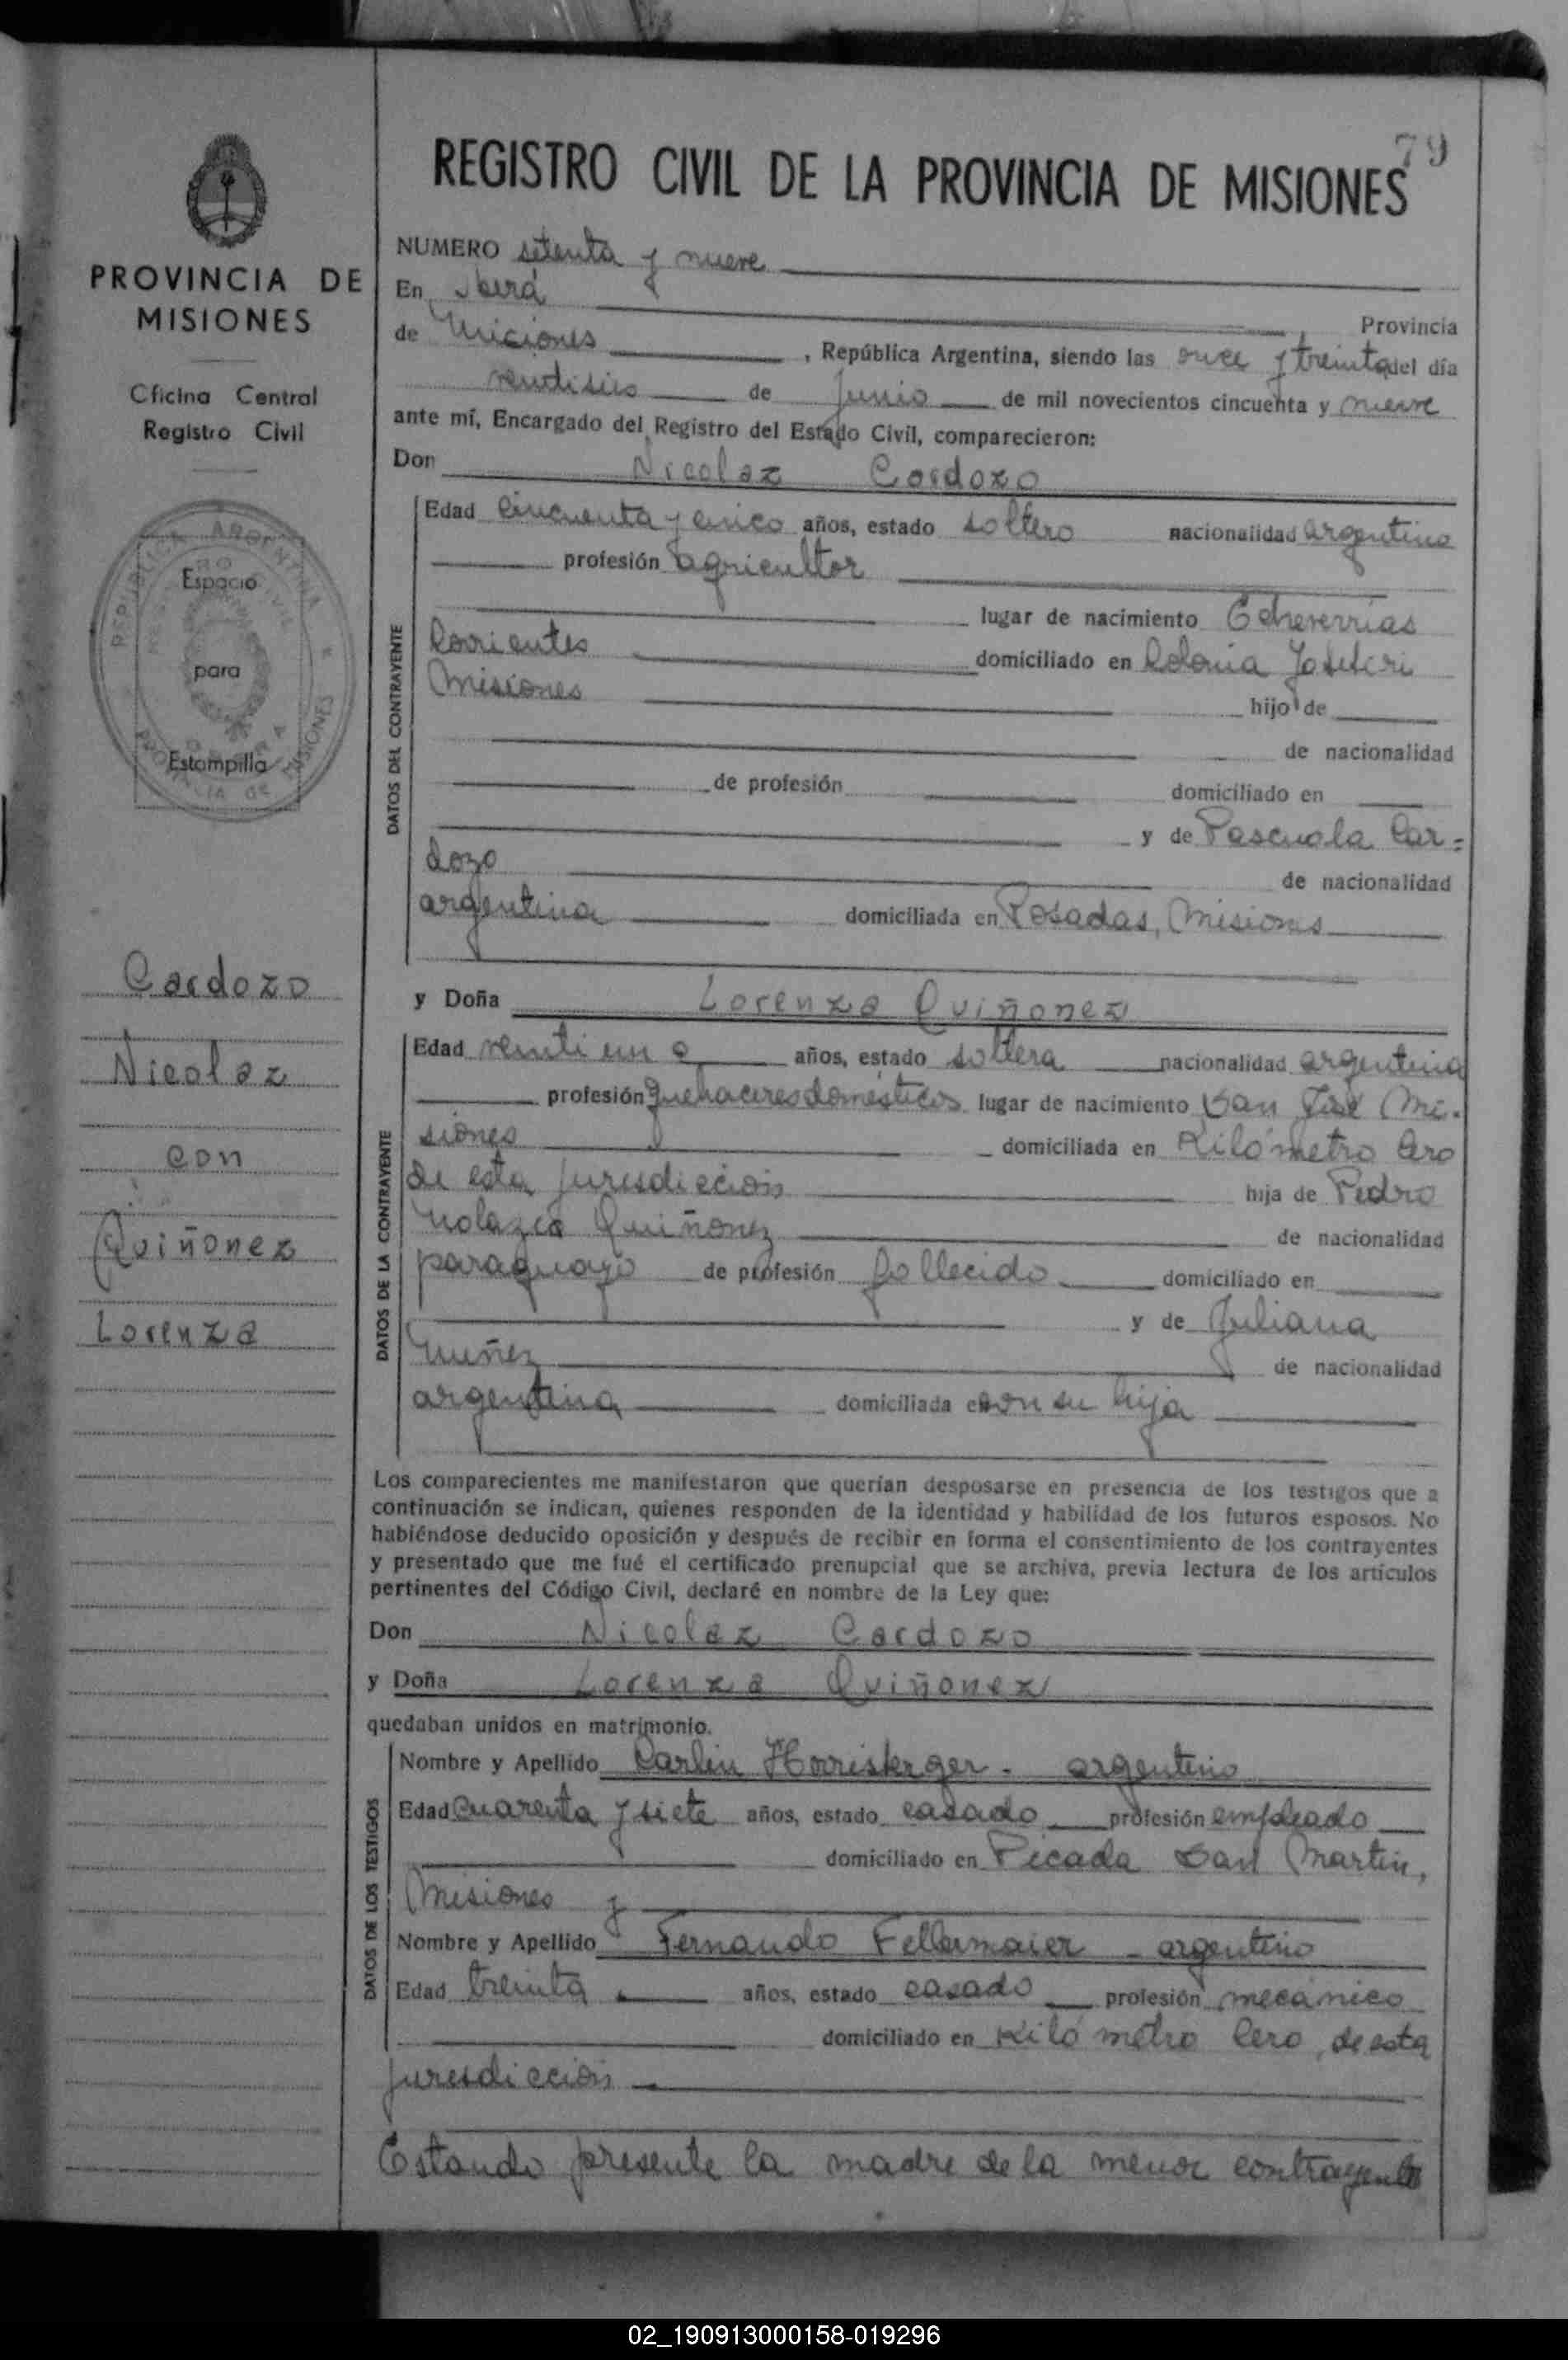 79
REGISTRO CIVIL DE LA PROVINCIA DE MISIONES
PROVINCIA DE
MISIONES
Oficina Central
Registro Civil
REPUBLICA ARGENTINA
PROVINCIA DE MISIONES
Espacio
para
Estampilla
Cardozo
Nicolaz
con
Quiñonez
Lorenza
NUMERO setenta y nueve
En Oberá
Provincia
de Misiones , República Argentina, siendo las once y treinta del día
de Junio de mil novecientos cincuenta y nueve
ante mí, Encargado del Registro del Estado Civil, comparecieron:
Don Nicolaz Cardozo
DATOS DEL CONTRAYENTE
Edad Cincuenta y cinco años, estado soltero nacionalidad argentina
profesión agricultor
lugar de nacimiento Echeverrias
Corrientes domiciliado en Colonia
Misiones hijo de
de nacionalidad
de profesión domiciliado en
y de Pascuala Car=
dozo de nacionalidad
argentina domiciliada en Posadas, Misiones
y Doña Lorenza Quiñonez
DATOS DE LA CONTRAYENTE
Edad veinti un o años, estado soltera nacionalidad argentina
profesión quehaceres domésticos lugar de nacimiento San José Mi-
siones domiciliada en Kilómetro Cero
de esta jurisdiccion hija de Pedro
Nolazco Quiñonez de nacionalidad
paraguayo de profesión fallecido domiciliado en
y de Juliana
Nuñez de nacionalidad
argentina domiciliada con su hija
Los comparecientes me manifestaron que querían desposarse en presencia de los testigos que a
continuación se indican, quienes responden de la identidad y habilidad de los futuros esposos. No
habiéndose deducido oposición y después de recibir en forma el consentimiento de los contrayentes
y presentado que me fué el certificado prenupcial que se archiva, previa lectura de los artículos
pertinentes del Código Civil, declaré en nombre de la Ley que:
Don Nicolaz Cardozo
y Doña Lorenza Quiñonez
quedaban unidos en matrimonio.
DATOS DE LOS TESTIGOS
Nombre y Apellido Carlin Horrisberger - argentino
Edad Cuarenta y siete años, estado casado profesión empleado
domiciliado en Picada San Martin,
Misiones y
Nombre y Apellido Fernando Fellermaier - argentino
Edad treinta años, estado casado profesión mecánico
domiciliado en Kilómetro Cero, de esta
jurisdiccion
Estando presente la madre de la menor contrayente
02_190913000158-019296